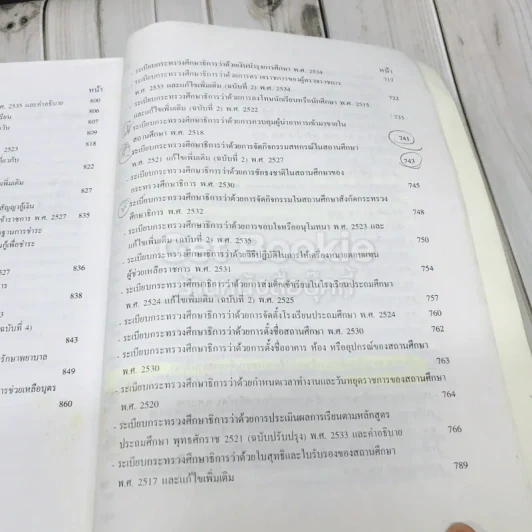 2535 และคำอธิบาย
หน้า
800
806
809
818
2523
822
827
ข้าราชการ พ.ศ. 2527
835
836
838
ฉบับที่ 4)
843
รักษาพยาบาล
849
การช่วยเหลือบุตร
860
หน้า
- ระเบียบกระทรวงศึกษาธิการว่าด้วยเงินบำรุงการศึกษา พ.ศ. 2534
717
พ.ศ. 2533 และแก้ไขเพิ่มเติม (ฉบับที่ 2) พ.ศ. 2534
722
และแก้ไขเพิ่มเติม (ฉบับที่ 2) พ.ศ. 2522
ระเบียบกระทรวงศึกษาธิการว่าด้วยการควบคุมผู้เข้าหาการเข้ามาขายใน
สถานศึกษา พ.ศ. 2518
741
ระเบียบกระทรวงศึกษาธิการว่าด้วยการจัดกิจกรรมสหกรณ์ในสถานศึกษา
พ.ศ. 2521 แก้ไขเพิ่มเติม (ฉบับที่ 2) พ.ศ. 2527
743
- ระเบียบกระทรวงศึกษาธิการว่าด้วยการชักธงชาติในสถานศึกษาของ
กระทรวงศึกษาธิการ พ.ศ. 2530
745
ระเบียบกระทรวงศึกษาธิการว่าด้วยการจัดกิจกรรมในสถานศึกษาสังกัดกระทรวง
ศึกษาธิการ พ.ศ. 2532
748
- ระเบียบกระทรวงศึกษาธิการว่าด้วยการขอบใจหรืออนุโมทนา พ.ศ. 2523 และ
แก้ไขเพิ่มเติม (ฉบับที่ 2) พ.ศ. 2535
750
- ระเบียบกระทรวงศึกษาธิการว่าด้วยวิธีปฏิบัติในการให้เครื่องหมายตอบแทน
ผู้ช่วยเหลือราชการ พ.ศ. 2531
754
- ระเบียบกระทรวงศึกษาธิการว่าด้วยการส่งเด็กเข้าเรียนในโรงเรียนประถมศึกษา
พ.ศ. 2524 แก้ไขเพิ่มเติม (ฉบับที่ 2) พ.ศ. 2525
757
- ระเบียบกระทรวงศึกษาธิการว่าด้วยการจัดตั้งโรงเรียนประถมศึกษา พ.ศ. 2524
760
- ระเบียบกระทรวงศึกษาธิการว่าด้วยการตั้งชื่อสถานศึกษา พ.ศ. 2530
762
- ระเบียบกระทรวงศึกษาธิการว่าด้วยการตั้งชื่ออาคาร ห้อง หรืออุปกรณ์ของสถานศึกษา
พ.ศ. 2530
763
- ระเบียบกระทรวงศึกษาธิการว่าด้วยกำหนดเวลาทำงานและวันหยุดราชการของสถานศึกษา
พ.ศ. 2520
764
- ระเบียบกระทรวงศึกษาธิการว่าด้วยการประเมินผลการเรียนตามหลักสูตร
ประถมศึกษา พุทธศักราช 2521 (ฉบับปรับปรุง) พ.ศ. 2533 และคำอธิบาย
766
- ระเบียบกระทรวงศึกษาธิการว่าด้วยใบสุทธิและใบรับรองของสถานศึกษา
พ.ศ. 2517 และแก้ไขเพิ่มเติม
789